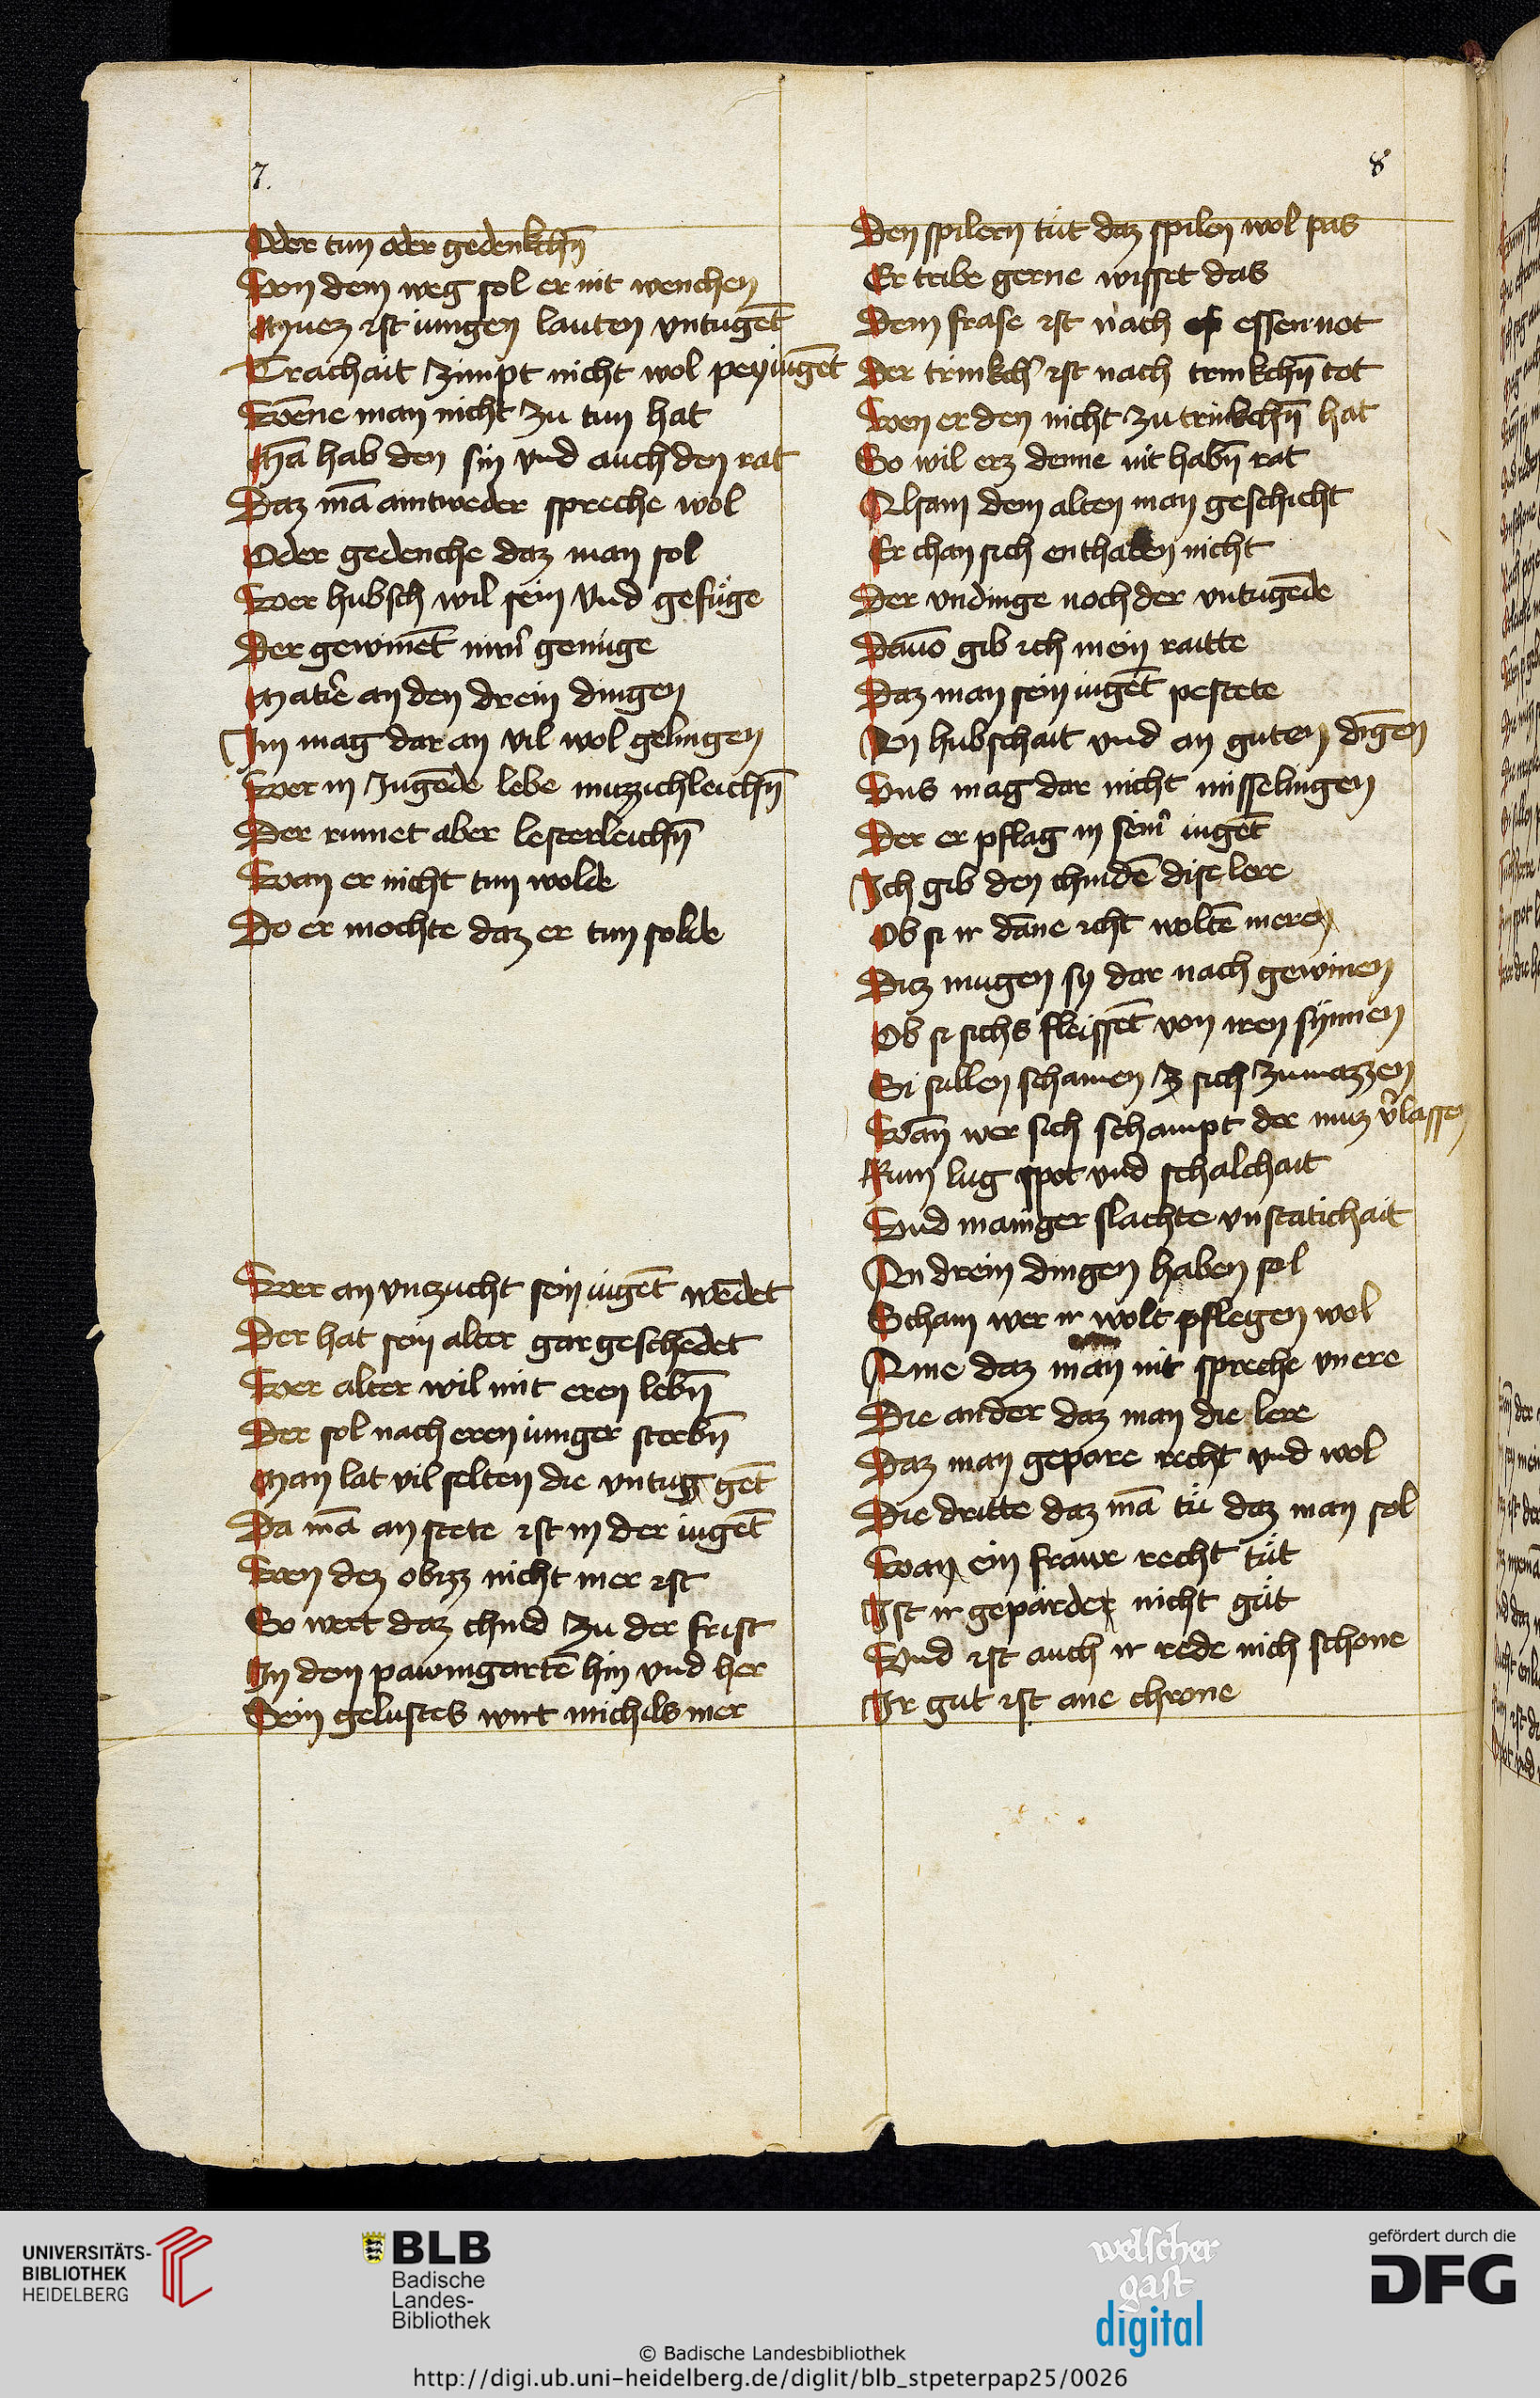 7.
Oder tun oder gedenkchn̄
Von dem weg sol er nit wenchen
Muez ist iungen lauten vntugēt
Trachait zimpt nicht wol pey iugēt
Wenne man nicht zu tun hat
Mā hab den sin vnd auch den rat
Daz mā aintweder spreche wol
Oder gedenche daz man sol
Wer hubsch wil sein vnd gefüge
Der gewinēt nim̄ genüge
Matie an den drein dingen
Im mag dar an vil wol gelingen
Wer in Jugēde lebe muzzichleichn̄
Der rumet aber lesterleichn̄
Wan er nicht tun wolde
Do er mochte daz er tun solde
Wer an vnczucht sein iugēt wēdet
Der hat sein alter gar geschēdet
Wer alter wil mit eren lebn̄
Der sol nach eren iunger sterbn̄
Man lat vil selten die vntug gēt
Da mā an stete ist in der iugēt
Wen dez obizz nicht mer ist
So wert daz chind zu der frist
In den pawmgartē hin vnd her
Sein gelustes wirt michils mer
8
Den spilern tüt daz spilen wol pas
Er tribe gerne wisset das
Dem frase ist nach essen not
Der trinkch̄ ist nach trinkchn̄ tot
Wen er den nicht zu trinkchn̄ hat
So wil erz denne nit habn̄ rat
Alsam dem alten man geschicht
Er chan sich enthaben nicht
Der vndinge noch der vntugēde
Dauō gib ich mein raitte
Daz man sein iugēt pestete
An hubschait vnd an guten dīgen
Vns mag dar nicht misselingen
Der er pflag in seim̄ iugēt
Ich gib den chindē dise lere
Ob si ir dāne icht woltē meren
Diz mugen sy dar nach gewinen
Ob si sichs fleissēt von iren synnen
Si sullen schamen z sich zumazzen
Wān wer sich schampt der muz v̄lassen
Rum lug spot vnd schalchait
Vnd mainger slachte vnstatichait
An drein dingen haben sol
Scham wer ir wolt pflegen wol
Aine daz man nit spreche vnere
Die ander daz man die lere
Daz man gepare recht vnd wol
Die dritte daz mā tü daz man sol
Wan ein frawe recht tüt
Ist ir geparde nicht güt
Vnd ist auch ir rede nich schone
Ir gut ist ane chrone
UNIVERSITÄTS-
BIBLIOTHEK
HEIDELBERG
BLB
Badische
Landes-
Bibliothek
welscher
gast
digital
gefördert durch die
DFG
© Badische Landesbibliothek
http://digi.ub.uni-heidelberg.de/diglit/blb_stpeterpap25/0026